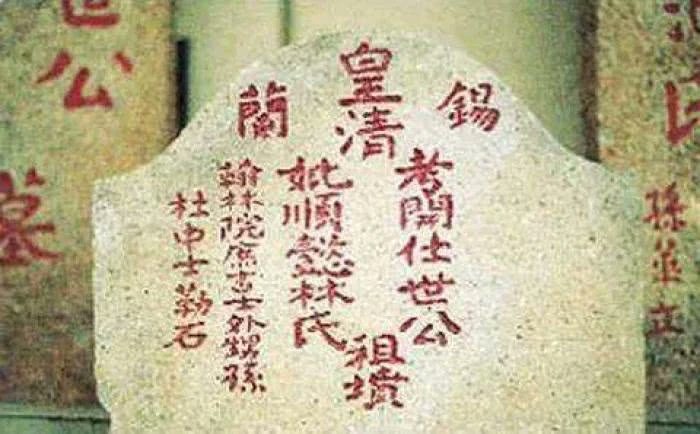 孫並立
錫蘭
皇清
考開仕世公
妣順懿林氏
祖墳
翰林院庶吉士外甥孫
杜中士勒石
世公
墓